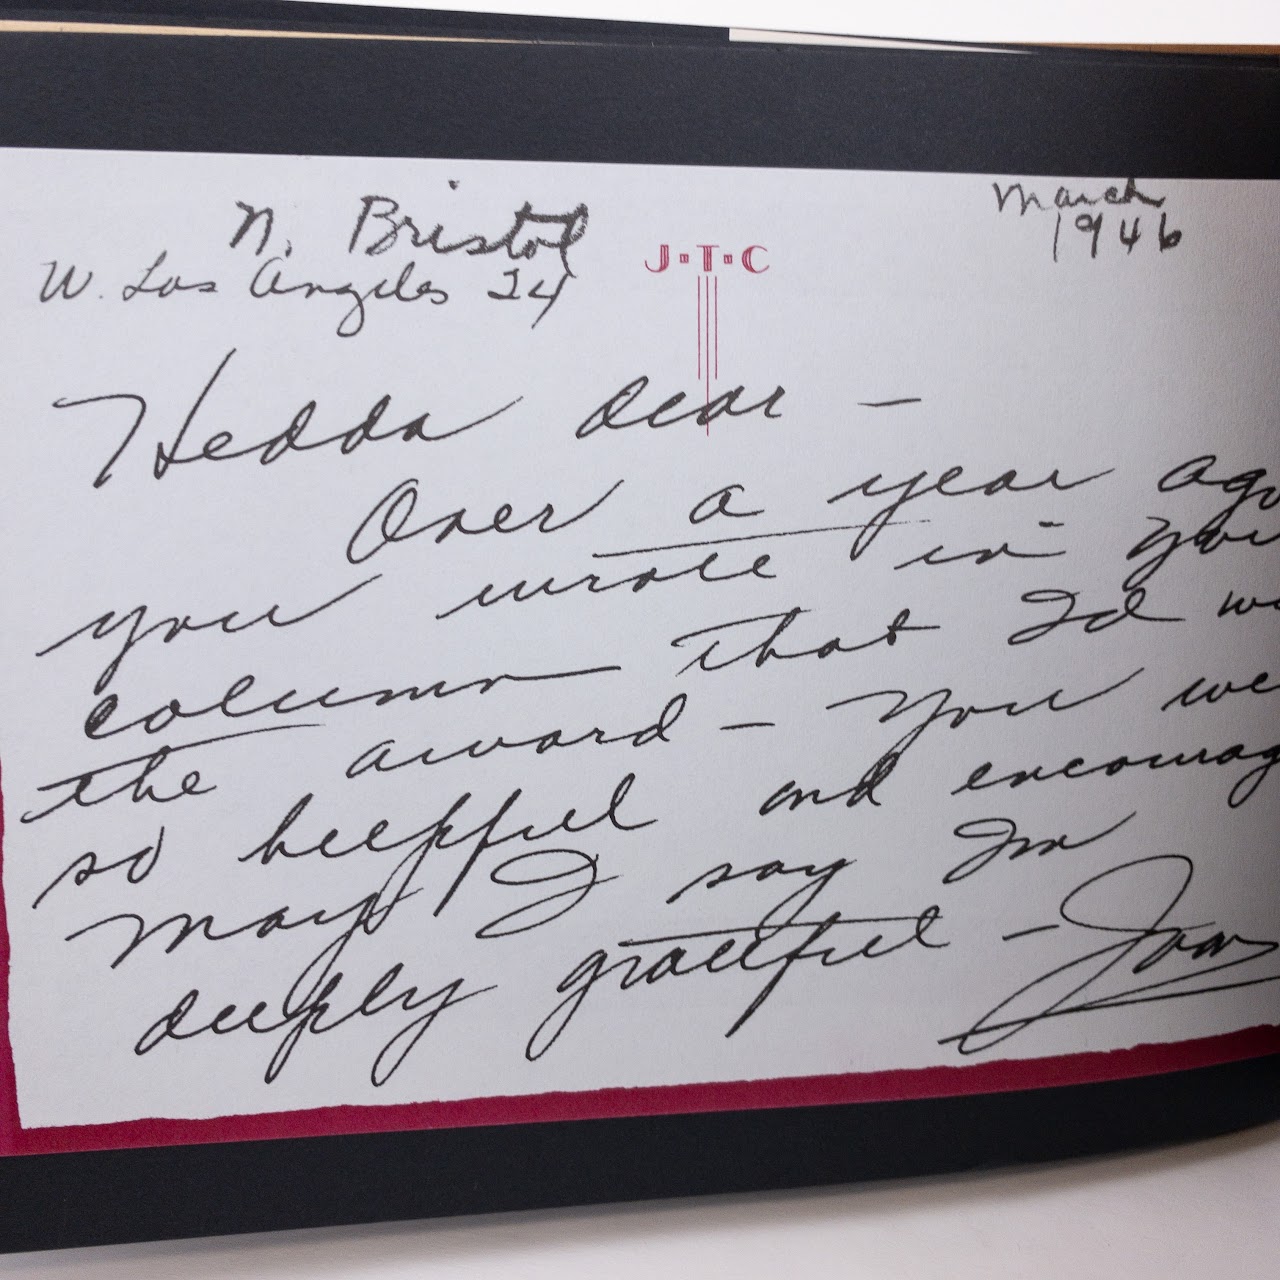 N. Bristol
W. Los Angeles 24
J·T·C
March
1946
Hedda dear —
Over a year ago
you wrote in
column that I'd
the award — You
so helpful and
May I say I'm
deeply grateful — Joan